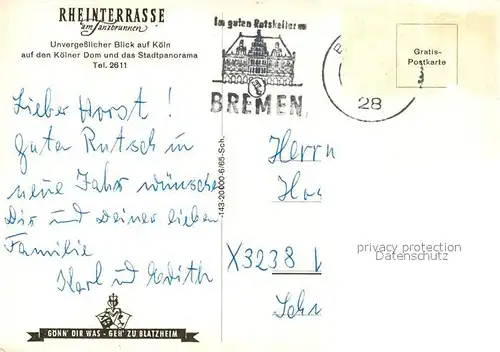 RHEINTERRASSE
am Tanzbrunnen
Unvergeßlicher Blick auf Köln
auf den Kölner Dom und das Stadtpanorama
Tel. 2611
Lieber Horst !
Guten Rutsch in
neue Jahr wünschen
Dir und Deiner lieben
Familie
Karl und Edith
GÖNN' DIR WAS - GEH' ZU BLATZHEIM
-143-20000-6/65-Sch.
Im guten Ratskeller
BREMEN
28
Gratis-
Postkarte
Herrn
X3238
privacy protection
Datenschutz